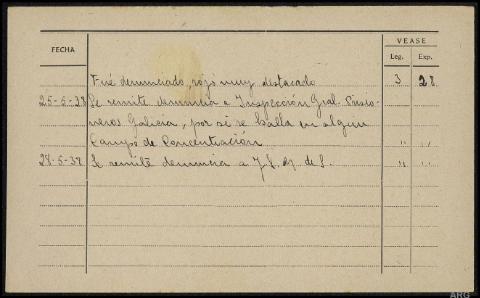 VEASE
FECHA
Leg. Exp.
Fué denunciado, rojo muy destacado 3 28
25-5-38 Se remite denuncia a Inspección Gral. Prisio-
neros Galicia, por si se halla en algun
Campo de Concentración " "
28-5-38 Se remite denuncia a J. S. de " "
ARG